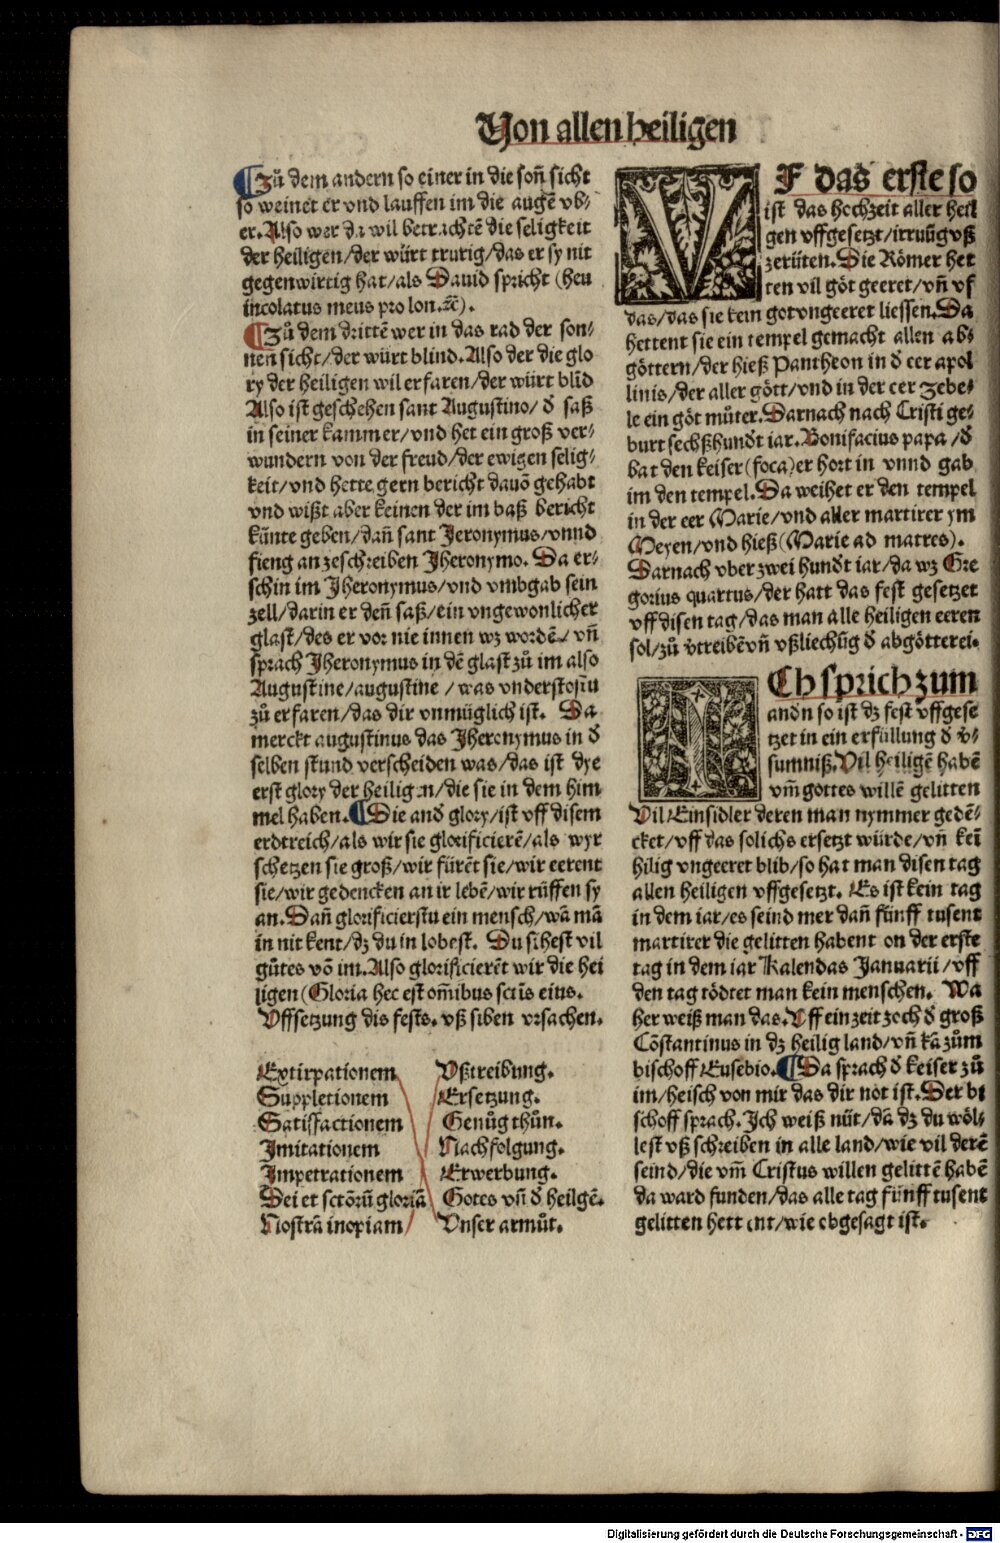 Von allen heiligen
¶Zů dem andern so einer in die soñ sicht
so weinet er vnd lauffen im die augē vb⸗
er. Also wer da wil betrachtē die seligkeit
der heiligen/der würt trurig/das er sy nit
gegenwirtig hat/als Dauid spricht (heu
incolatus meus pro lon. ⁊c̄).
¶Zů dem drittē wer in das rad der son⸗
nen sicht/der würt blind. Also der die glo
ry der heiligen wil erfaren/der würt blīd
Also ist geschehen sant Augustino/ d̄ saß
in seiner kammer/vnd het ein groß ver⸗
wundern von der freud/der ewigen selig⸗
keit/vnd hette gern bericht dauō gehabt
vnd wißt aber keinen der im baß bericht
kūnte geben/dañ sant Jeronymus/vnnd
fieng an zeschreiben Jheronymo. Da er⸗
schin im Jheronymus/vnd vmbgab sein
zell/darin er deñ saß/ein vngewonlicher
glast/des er vor nie innen wz wordē/ vñ
sprach Jheronymus in dē glast zů im also
Augustine/augustine /was vnderstostu
zů erfaren/das dir vnmüglich ist. Da
merckt augustinus das Jheronymus in d̄
selben stund verscheiden was/das ist dye
erst glory der heiligen/die sie in dem him
mel haben. ¶Die and̄ glory/ist vff disem
erdtreich/als wir sie glorificierē/als wyr
schetzen sie groß/wir fürēt sie/wir eerent
sie/wir gedencken an ir lebē/wir rüffen sy
an. Dañ glorificierstu ein mensch/wā mā
in nit kent/dz du in lobest. Du sihest vil
gůtes vō im. Also glorificierēt wir die hei
ligen (Gloria hec est om̄ibus sctīs eius.
Vffsetzung dis fests. vß siben vrsachen.
Extirpationem Vßtreibung.
Suppletionem Ersetzung.
Satisfactionem Genůg thůn.
Imitationem Nachfolgung.
Impetrationem Erwerbung.
Dei et sctōrū gloriā Gotes vñ d̄ heilgē.
Nostrā inopiam Vnser armůt.
VF das erste so
ist das hochzeit aller heil
gen vffgesetzt/irruñg vß
zerüten. Die Römer het
ten vil göt geeret/vñ vf
das/das sie kein got vngeeret liessen. Da
hettent sie ein tempel gemacht allen ab⸗
göttern/der hieß Pantheon in d̄ eer apol
linis/der aller gött/vnd in der eer Zebe⸗
le ein göt můter. Darnach nach Cristi ge⸗
burt sechßhundt̄ iar. Bonifacius papa /d̄
bat den keiser (foca) er hort in vnnd gab
im den tempel. Da weihet er den tempel
in der eer Marie/vnd aller martirer ym
Meyen/vnd hieß (Marie ad matres).
Darnach vber zwei hundt̄ iar/da wz Gre
gorius quartus/der hatt das fest gesetzet
vff disen tag/das man alle heiligen eeren
sol/zů v̄treibē vñ vßliechūg d̄ abgötterei.
ICh sprich zum
andn̄ so ist dz fest vffgese
tzet in ein erfüllung d̄ v̄⸗
sumniß. Vil heiligē habē
vm̄ gottes willē gelitten
Vil Einsidler deren man nymmer gedē⸗
cket/vff das solichs ersetzt würde/vñ kei
hilig vngeeret blib/so hat man disen tag
allen heiligen vffgesetzt. Es ist kein tag
in dem iar/es seind mer dañ fünff tusent
martirer die gelitten habent on der erste
tag in dem iar Kalendas Januarii/vff
den tag tödtet man kein menschen. Wa
her weiß man das. Vff ein zeit zoch d̄ groß
Cōstantinus in dz heilig land/vñ kā zům
bischoff Eusebio. ¶Da sprach d̄ keiser zů
im/heisch von mir das dir not ist. Der bi
schoff sprach. Ich weiß nüt/dā dz du wöl⸗
lest vß schreiben in alle land/wie vil derē
seind/die vm̄ Cristus willen gelittē habē
da ward funden/das alle tag fünff tusent
gelitten hettent/wie obgesagt ist.
Digitalisierung gefördert durch die Deutsche Forschungsgemeinschaft - DFG